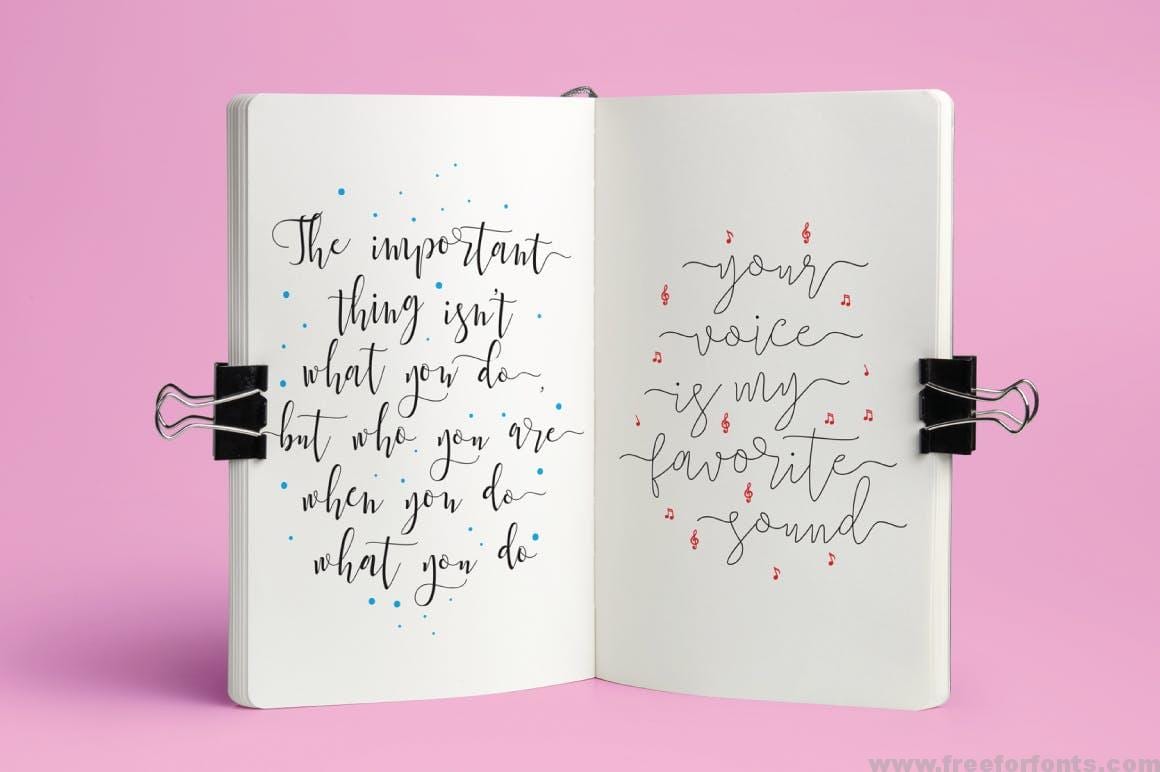 The important
thing isn't
what you do,
but who you are
when you do
what you do
your
voice
is my
favorite
sound
www.freeforfonts.com